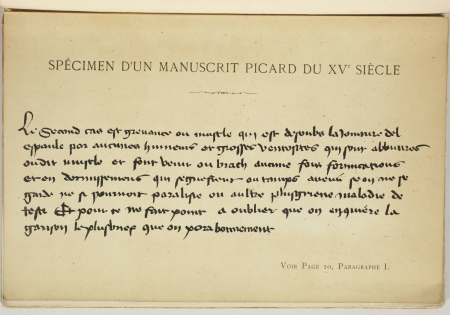 SPÉCIMEN D'UN MANUSCRIT PICARD DU XVᵉ SIÈCLE
Le Second cas est grevance ou muscle qui est desoubz la Jointure del
espaule por aucunes humeurs et grosses ventosites qui sont
oudit muscle et font venir ou brach aucune fois formications
et en dormissemens qui segnefient ou tamps avenir se on ne se
garde ne si pourvoit paralisie ou aultre plus griene maladie de
teste Et pour ce ne fait point a oublier que on enquiere la
garison le plus brief que on pora bonnement
VOIR PAGE 10, PARAGRAPHE I.